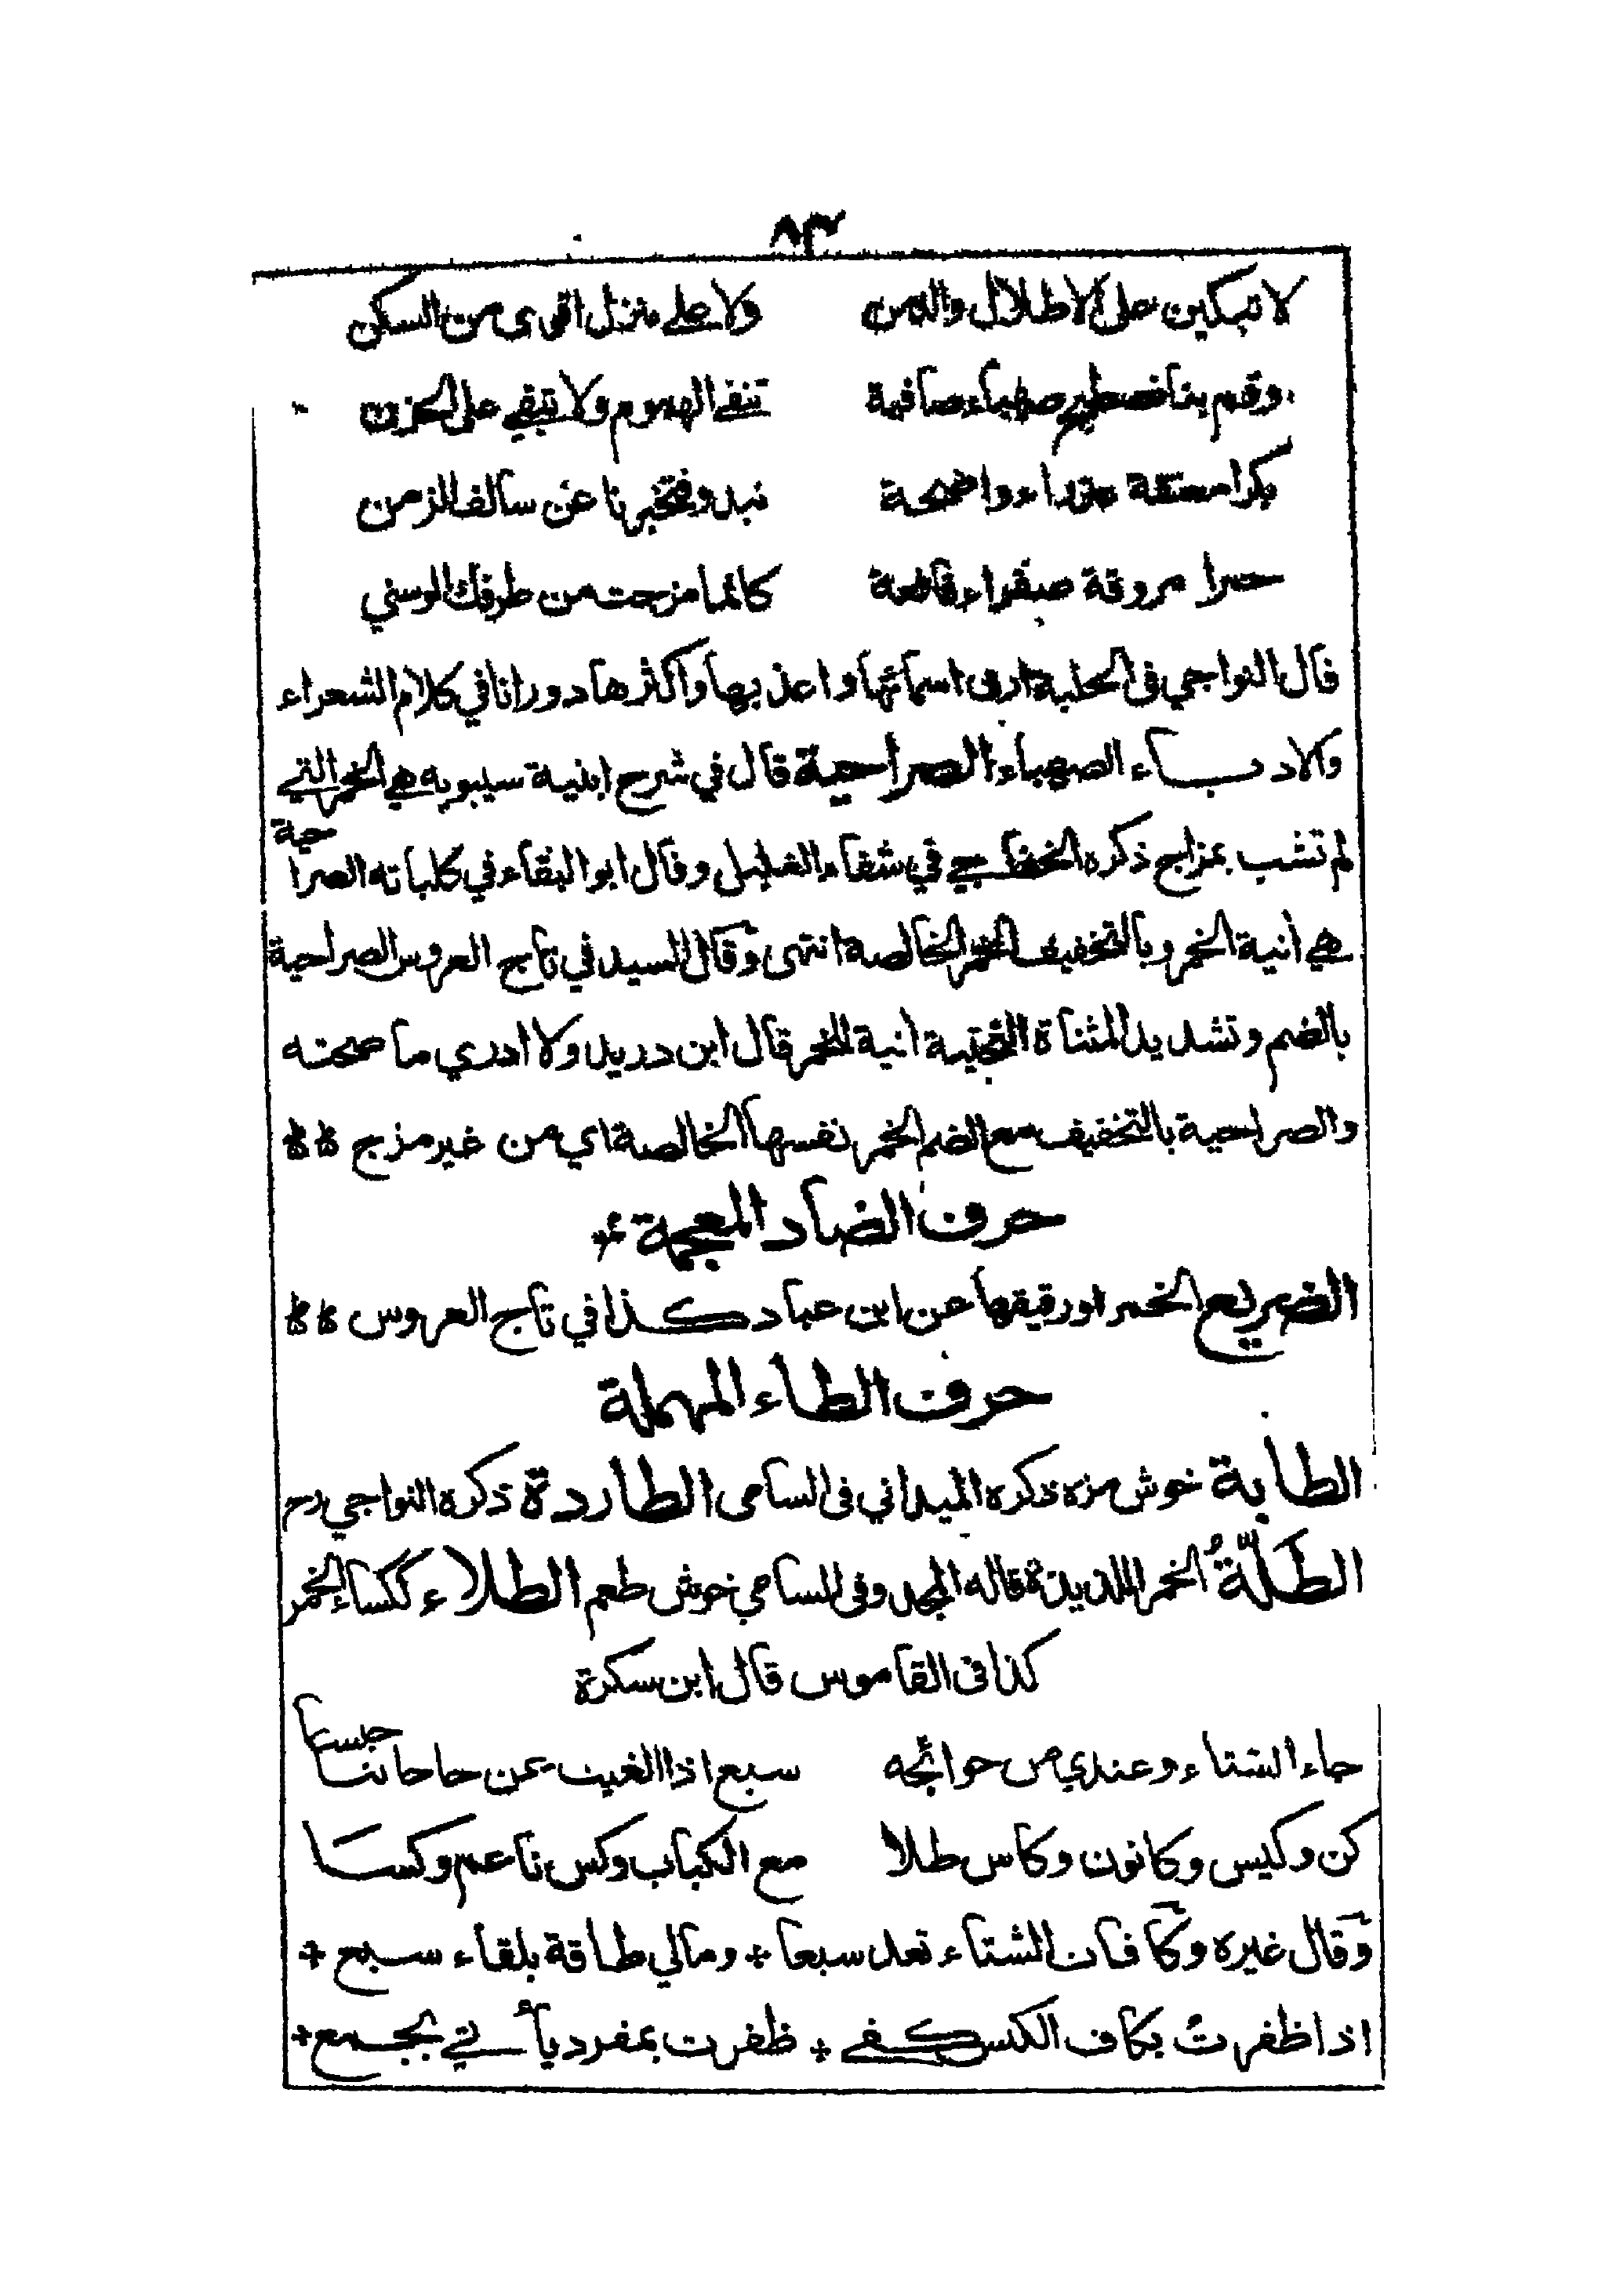 ٨٣
لا تبكين على الاطلال والدمن ولا على منزل اقوى من السكن
وقم بنا نصطبح صهباء صافية تنفى الهموم ولا تبقي على الحزن
بكرا معتقة عذراء واضحة تبدو فتخبرنا عن سالف الزمن
حمرا مروقة صفراء فاقعة كانما مزجت من طرفك الوسني
قال النواجي فى الحلبة ارق اسمائها واعذبها واكثرها دورانا في كلام الشعراء
والادباء الصهباء الصراحية قال في شرح ابنية سيبويه هي الخمر التي
لم تشب بمزاج ذكره الخفاجي في شفاء الغليل وقال ابو البقاء في كلياته الصراحية
هي انية الخمر وبالتخفيف الخمر الخالصة انتهى وقال السيد في تاج العروس الصراحية
بالضم وتشديد المثناة التحتية انية للخمر قال ابن دريد ولا ادري ما صحته
والصراحية بالتخفيف مع الضم الخمر نفسها الخالصة اي من غير مزج
حرف الضاد المعجمة
الضريع الخمر او رقيقها عن ابن عباد كذا في تاج العروس
حرف الطاء المهملة
الطابة خوش مزه ذكره الميداني فى السامى الطاردة ذكره النواجي رح
الطَلّةُ الخمر اللذيذة قاله المجد وفى السامي خوش طعم الطلاء ككساء الخمر
كذا فى القاموس قال ابن سكرة
جاء الشتاء وعندي من حوائجه سبع اذا الغيث عن حاجاتنا حبسا
كن وكيس وكانون وكاس طلا مع الكباب وكس ناعم وكسا
وقال غيره وكافات الشتاء تعد سبعا + ومالي طاقة بلقاء سبع +
اذا ظفرت بكاف الكس كفي + ظفرت بمفرد يأتي بجمع +